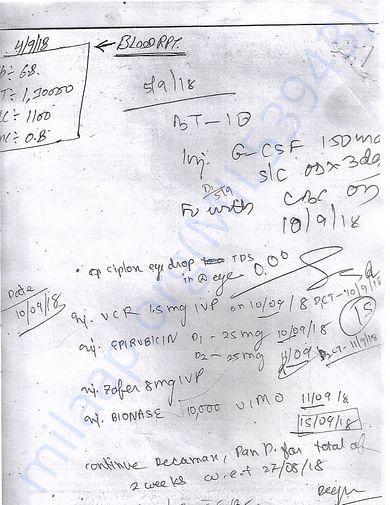 4/9/18 ← BLOOD RPT.
b ÷ 6.8
T ÷ 1,30000
C ÷ 1100
nc ÷ 0.8
5/9/18
BT - 1D
Inj. G-CSF 150 mc
S/C OD x 3da
D 5/9
FU with CBC on
10/9/18
ciplox eye drop TDS
in eye
Date
10/09/18
inj. VCR 1.5 mg IVP on 10/09/18 DCT-10/9/18
15
inj. EPIRUBICIN D1 - 25 mg 10/09/18
D2 - 25 mg 11/09 DCT-11/9/18
inj. Zofer 8 mg IVP
inj. BIONASE 10,000 U IMO 11/09/18
15/09/18
continue Decamax, Pan D. for total of
2 weeks w.e.f 27/08/18
milaap.org (MIL53943)